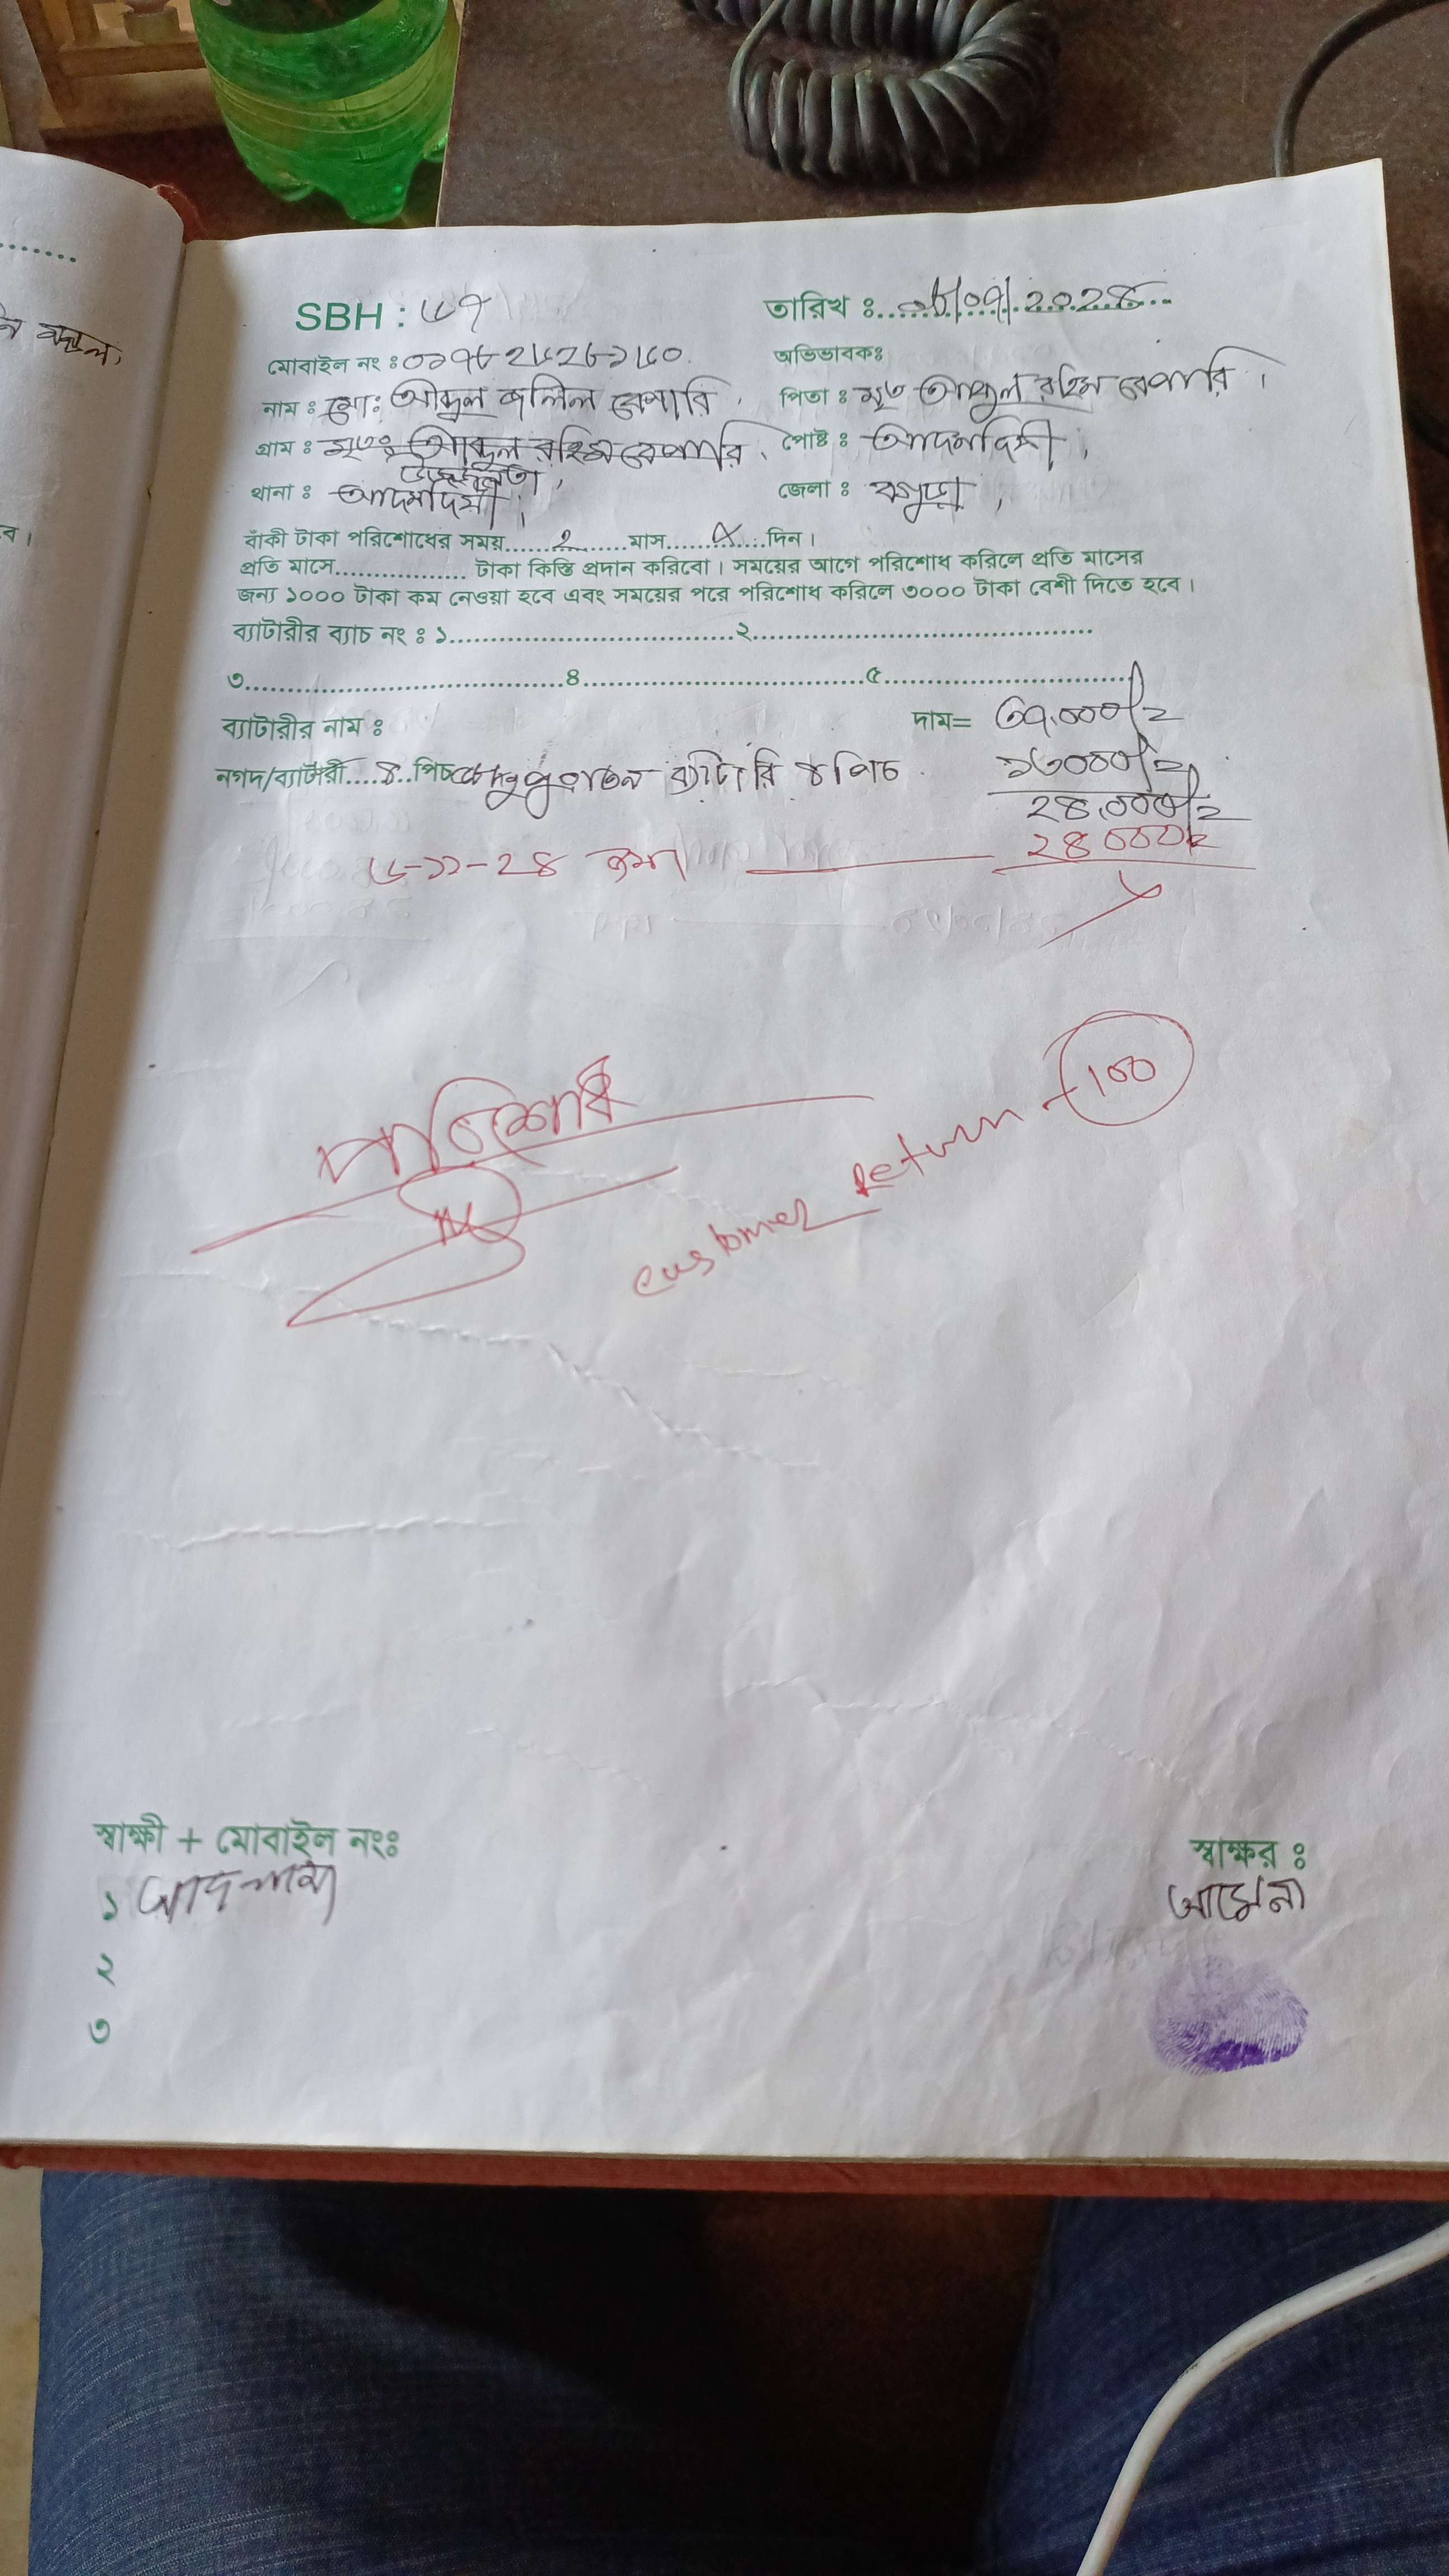 SBH : ৬৭
তারিখ ঃ ০৮/০৭/২০২৪
মোবাইল নং ঃ
অভিভাবকঃ
নাম ঃ মো: আব্দুল জলিল বেপারি
পিতা ঃ মৃত আব্দুল রহিম বেপারি।
গ্রাম ঃ মৃতঃ আব্দুল রহিম বেপারি
পোষ্ট ঃ আদমদিঘী,
থানা ঃ আদমদিঘী।
জেলা ঃ বগুড়া,
বাঁকী টাকা পরিশোধের সময়......২......মাস.........দিন।
প্রতি মাসে................ টাকা কিস্তি প্রদান করিবো। সময়ের আগে পরিশোধ করিলে প্রতি মাসের
জন্য ১০০০ টাকা কম নেওয়া হবে এবং সময়ের পরে পরিশোধ করিলে ৩০০০ টাকা বেশী দিতে হবে।
ব্যাটারীর ব্যাচ নং ঃ ১....................................২....................................
৩....................................৪....................................৫....................................
ব্যাটারীর নাম ঃ
দাম= ৩৭,০০০/=
নগদ/ব্যাটারী....৪..পিচ পুরাতন ব্যাটারি ৪ পিচ
১৩০০০/=
২৪,০০০/=
২৪০০০/=
৬-১১-২৪ জমা
পরিশোধ
customer return - 100
স্বাক্ষী + মোবাইল নংঃ
স্বাক্ষর ঃ
১
২
৩